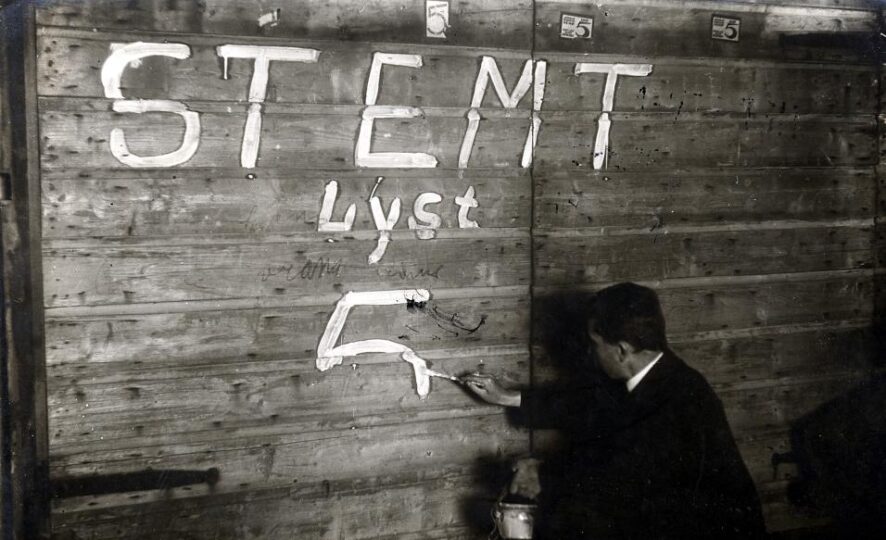 5 5 5
STEMT
Lyst
5